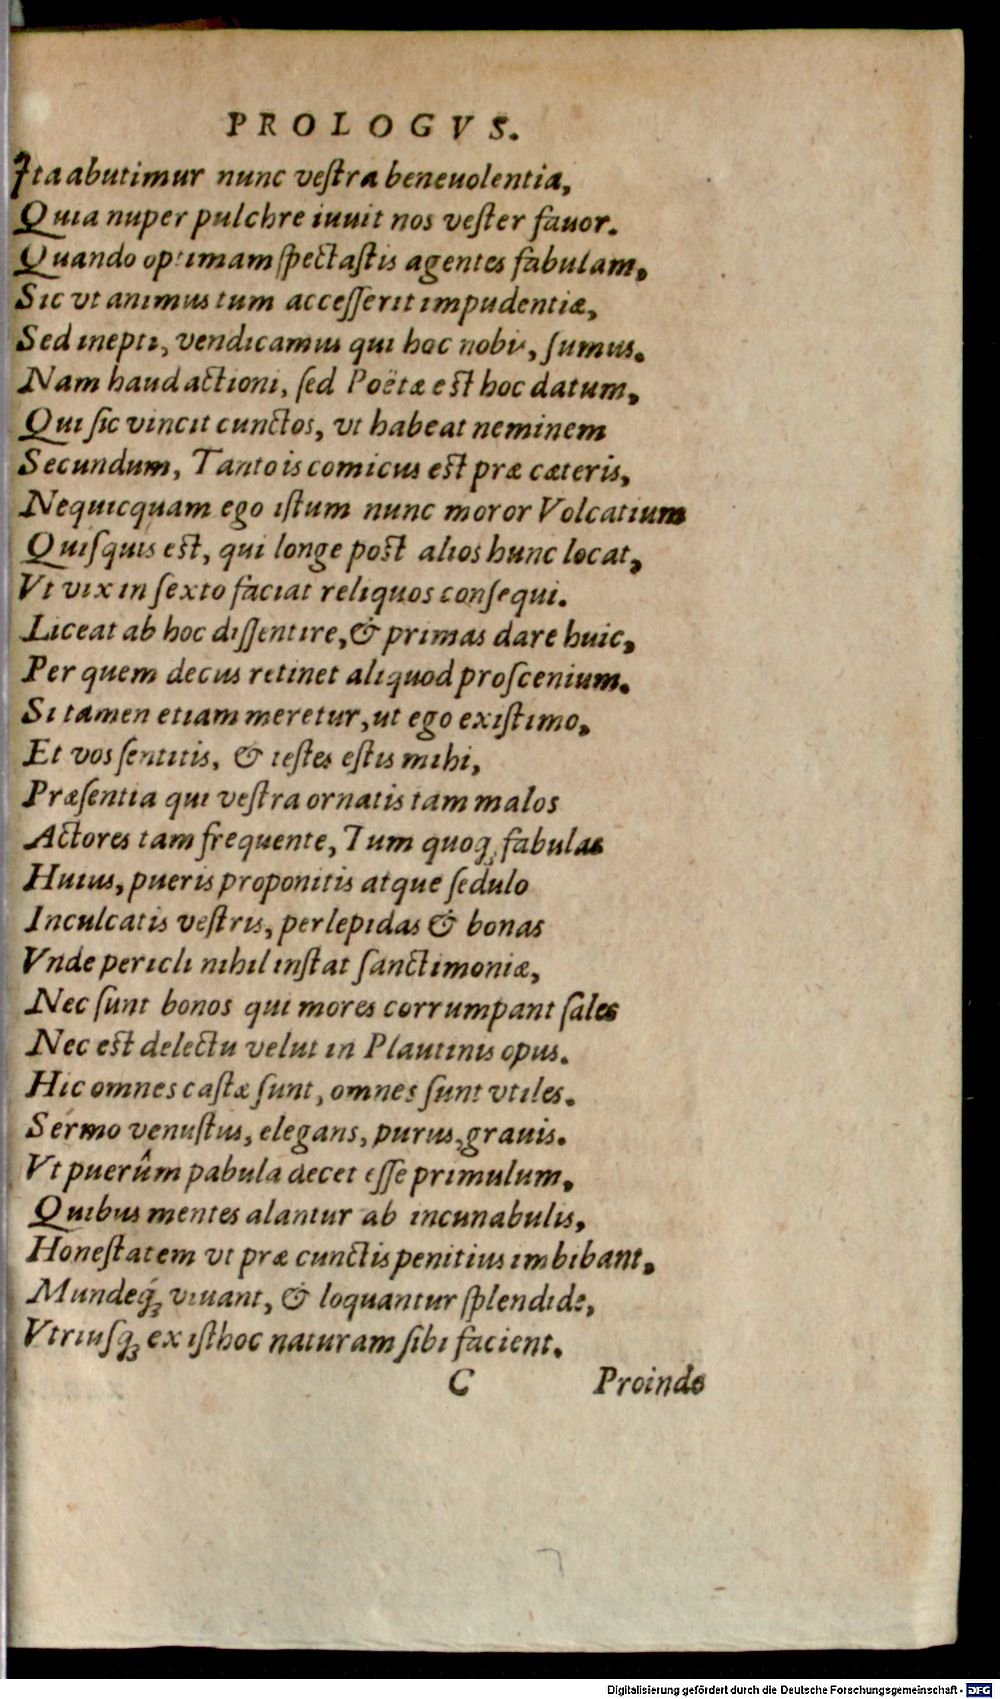 PROLOGVS.
Ita abutimur nunc veſtra beneuolentia,
Quia nuper pulchre iuuit nos veſter fauor.
Quando optimam ſpectaſtis agentes fabulam,
Sic vt animus tum acceſſerit impudentiæ,
Sed inepti, vendicamus qui hoc nobis, ſumus.
Nam haud actioni, ſed Poëtæ eſt hoc datum,
Qui ſic vincit cunctos, vt habeat neminem
Secundum, Tanto is comicus eſt præ cæteris,
Nequicquam ego iſtum nunc moror Volcatium
Quiſquis eſt, qui longe poſt alios hunc locat,
Vt vix in ſexto faciat reliquos conſequi.
Liceat ab hoc diſſentire, & primas dare huic,
Per quem decus retinet aliquod proſcenium.
Si tamen etiam meretur, ut ego exiſtimo,
Et vos ſentitis, & teſtes eſtis mihi,
Præſentia qui veſtra ornatis tam malos
Actores tam frequente, Tum quoq; fabulas
Huius, pueris proponitis atque ſedulo
Inculcatis veſtris, perlepidas & bonas
Vnde pericli nihil inſtat ſanctimoniæ,
Nec ſunt bonos qui mores corrumpant ſales
Nec eſt delectu velut in Plautinis opus.
Hic omnes caſtæ ſunt, omnes ſunt vtiles.
Sermo venuſtus, elegans, purus, grauis.
Vt puerûm pabula decet eſſe primulum,
Quibus mentes alantur ab incunabulis,
Honeſtatem vt præ cunctis penitius imbibant,
Mundeq́; viuant, & loquantur ſplendide,
Vtriuſq; ex iſthoc naturam ſibi facient.
C Proinde
Digitalisierung gefördert durch die Deutsche Forschungsgemeinschaft - DFG